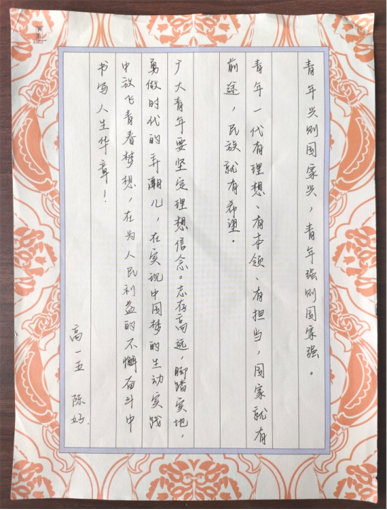 青年兴则国家兴，青年强则国家强。
青年一代有理想、有本领、有担当，国家就有
前途，民族就有希望。
广大青年要坚定理想信念。志存高远，脚踏实地，
勇做时代的弄潮儿，在实现中国梦的生动实践
中放飞青春梦想，在为人民利益的不懈奋斗中
书写人生华章！
高一五 陈妈